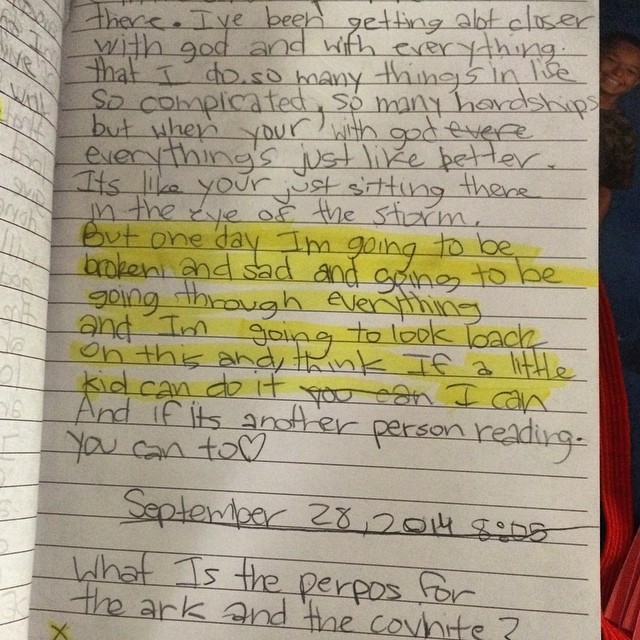 there. I've been getting alot closer
with god and with everything.
that I do. so many things in life
so complicated, so many hardships
but when your with god evere
everythings just like better.
Its like your just sitting there
in the eye of the storm.
But one day Im going to be
broken and sad and going to be
going through everything
and Im going to look back
on this and think If a little
kid can do it you can I can
And if its another person reading.
you can to♡
September 28, 2014 8:05
What Is the perpos for
the ark and the covnite?